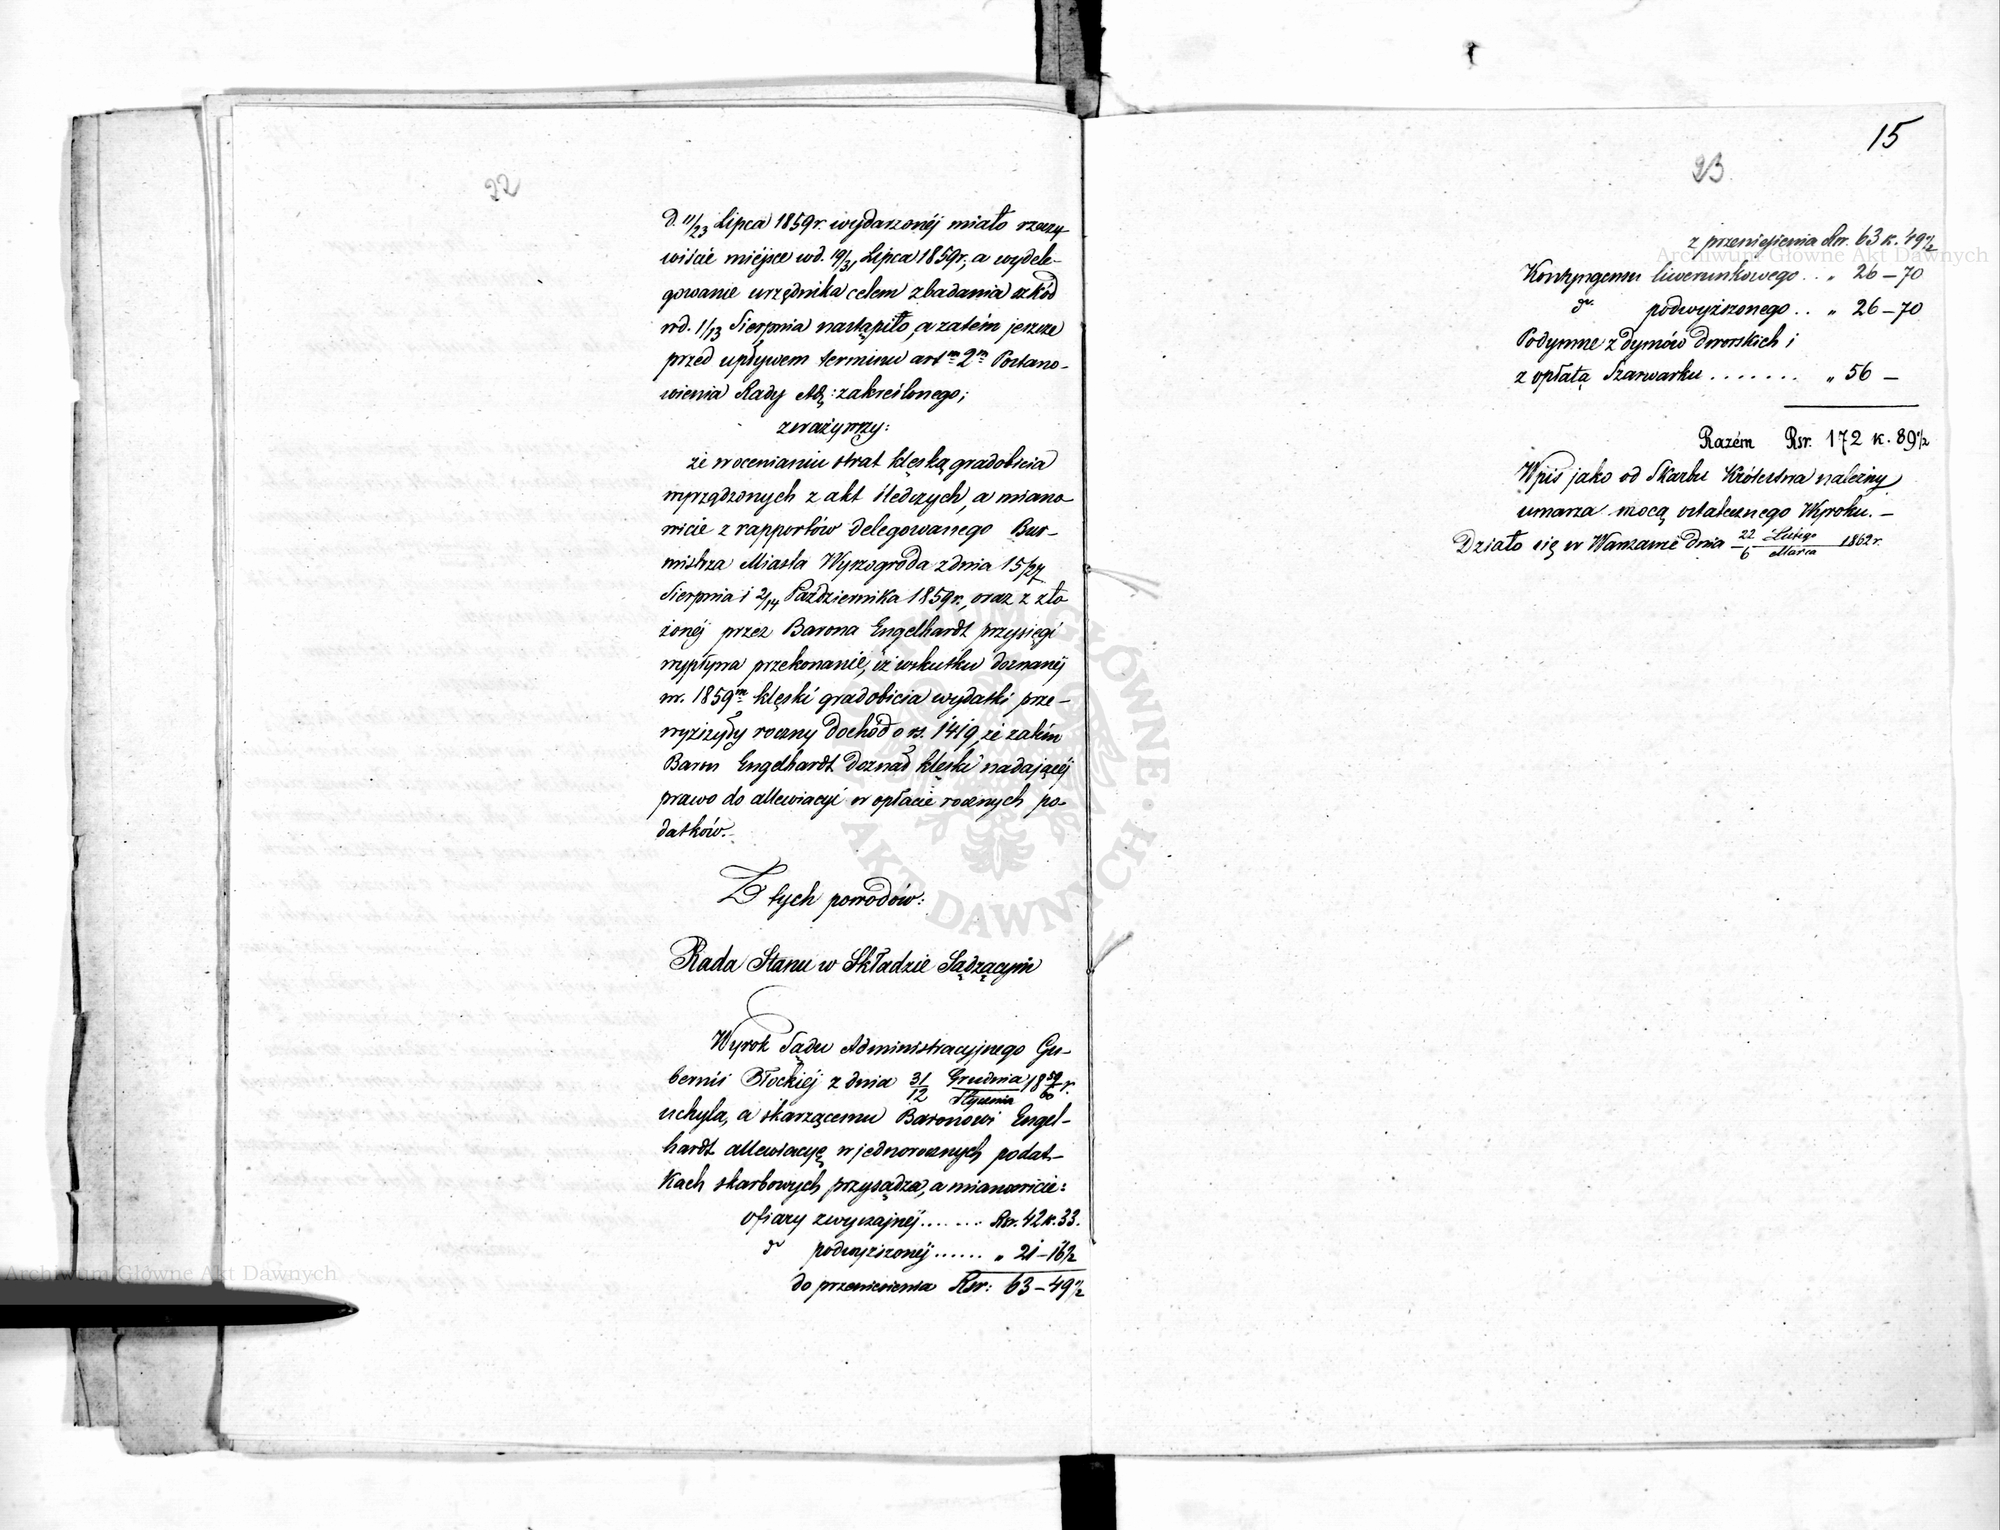 22
d. 11/23 Lipca 1859r. wydarzonéj miało rzeczy-
wiście miéjsce w d. 19/31 Lipca 1859r., a wydele-
gowanie urzędnika celem zbadania szkód
w d. 1/13 Sierpnia nastąpiło, a zatém jeszcze
przed upływem terminu artm 2m Postano-
wienia Rady Adm: zakreślonego;
zważywszy:
że w ocenianiu strat klęską gradobicia
wyrządzonych z akt śledczych, a miano-
wicie z rapportów delegowanego Bur-
mistrza Miasta Wyszogroda z dnia 15/27
Sierpnia i 2/14 Października 1859r., oraz z zło
żonéj przez Barona Engelhardt przysięgi
wypływa przekonanie, iż wskutku doznanéj
w r. 1859m klęski gradobicia wydatki prze-
wyższyły roczny dochód o rs. 1419, że zatém
Baron Engelhardt doznał klęski nadającéj
prawo do allewiacyi w opłacie rocznych po-
datków.-
Z tych powodów:
Rada Stanu w Składzie Sądzącym
Wyrok Sądu Administracyjnego Gu-
bernii Płockiéj z dnia 31/12 Grudnia/Stycznia 1859/60 r.
uchyla, a skarżącemu Baronowi Engel-
hardt allewiacyę w jednorocznych podat-
kach skarbowych przysądza, a mianowicie:
ofiary zwyczajnéj....... Rsr. 42 k. 33.
do podwyższonéj...... „ 21-16½
do przeniesienia Rsr: 63-49½
15
23
z przeniesienia Rsr. 63 k. 49½
Kontyngensu liwerunkowego.. „ 26-70
do podwyższonego.. „ 26-70
Podymne z dymów dworskich i
z opłatą Szarwarku....... „ 56 -
Razém Rsr. 172 k. 89½
Wpis jako od Skarbu Królestwa należny
umarza mocą ostatecznego Wyroku.-
Działo się w Warszawie dnia 22/6 Lutego/Marca 1862r.
Archiwum Główne Akt Dawnych
Archiwum Główne Akt Dawnych